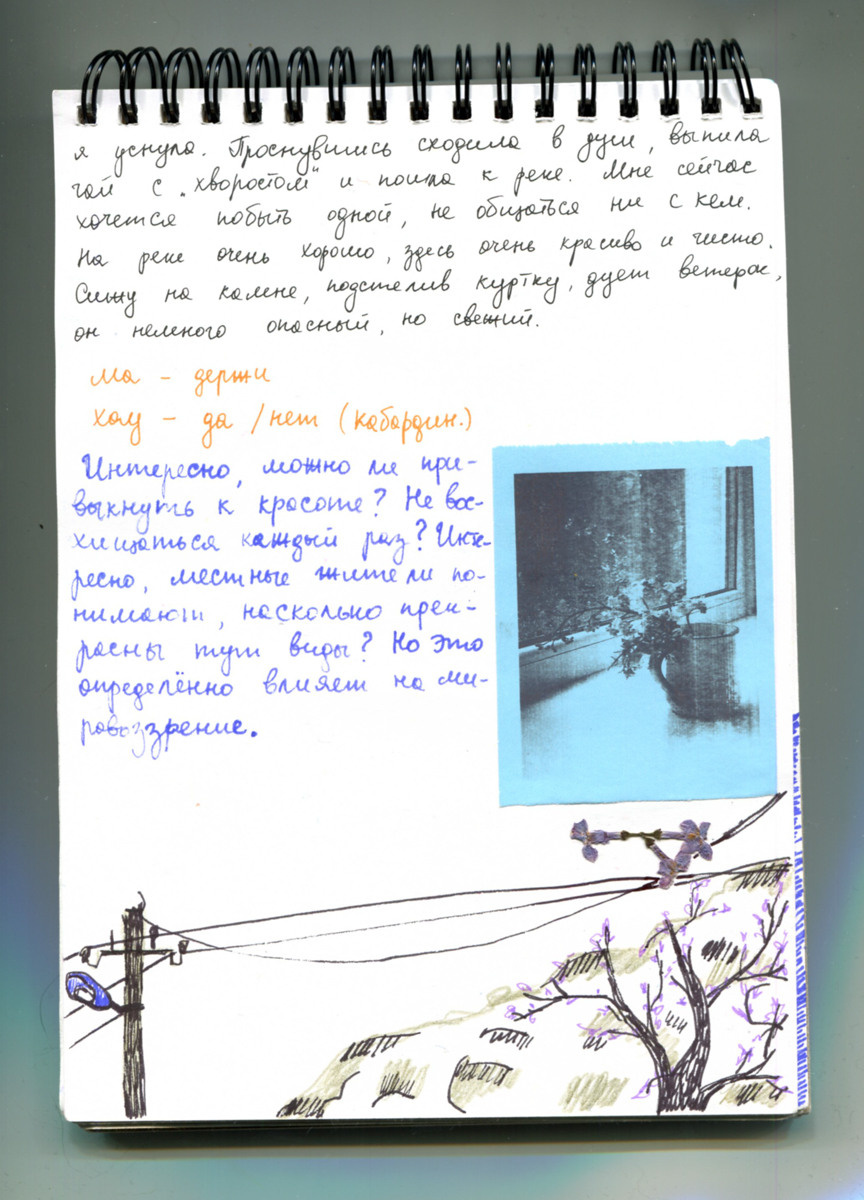 я уснула. Проснувшись сходила в душ, выпила
чай с „хворостом" и пошла к реке. Мне сейчас
хочется побыть одной, не общаться ни с кем.
На реке очень хорошо, здесь очень красиво и чисто.
Сижу на камне, подстелив куртку, дует ветерок,
он немного опасный, но свежий.
ма - держи
хау - да / нет (кабардин.)
Интересно, можно ли при-
выкнуть к красоте? Не вос-
хищаться каждый раз? Инте-
ресно, местные жители по-
нимают, насколько прек-
расны тут виды? Но это
определённо влияет на ми-
ровоззрение.